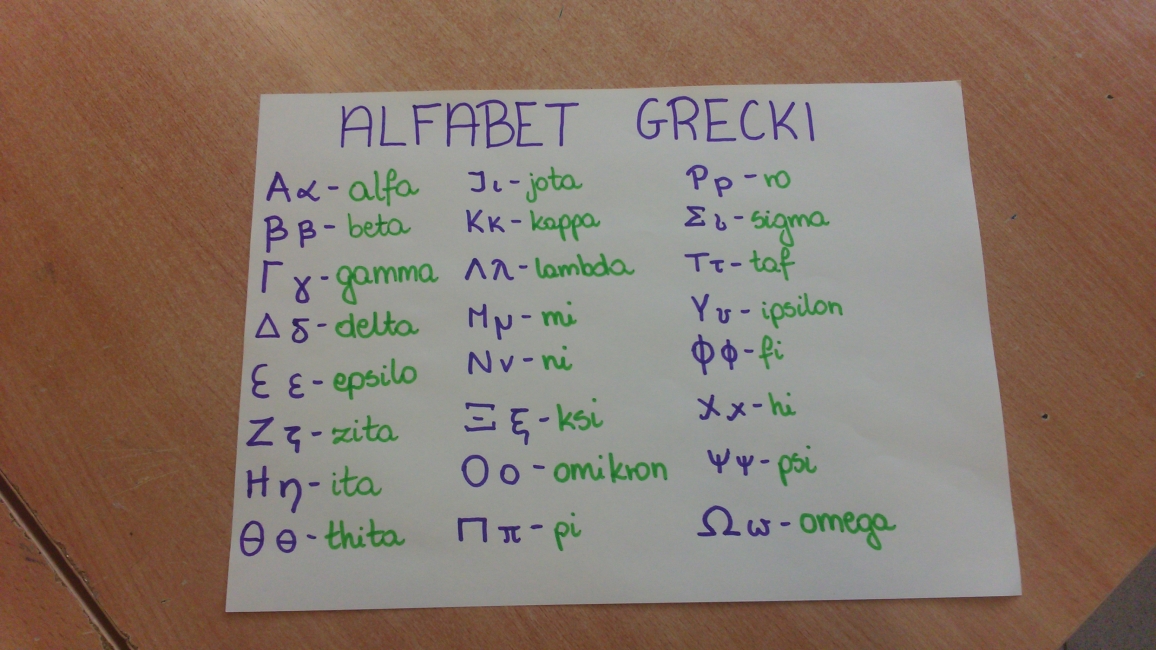 ALFABET GRECKI
Αα - alfa
Ββ - beta
Γγ - gamma
Δδ - delta
Εε - epsilo
Ζζ - zita
Ηη - ita
Θθ - thita
Ιι - jota
Κκ - kappa
Λλ - lambda
Μμ - mi
Νν - ni
Ξξ - ksi
Οο - omikron
Ππ - pi
Ρρ - ro
Σς - sigma
Ττ - taf
Υυ - ipsilon
Φφ - fi
Χχ - hi
Ψψ - psi
Ωω - omega